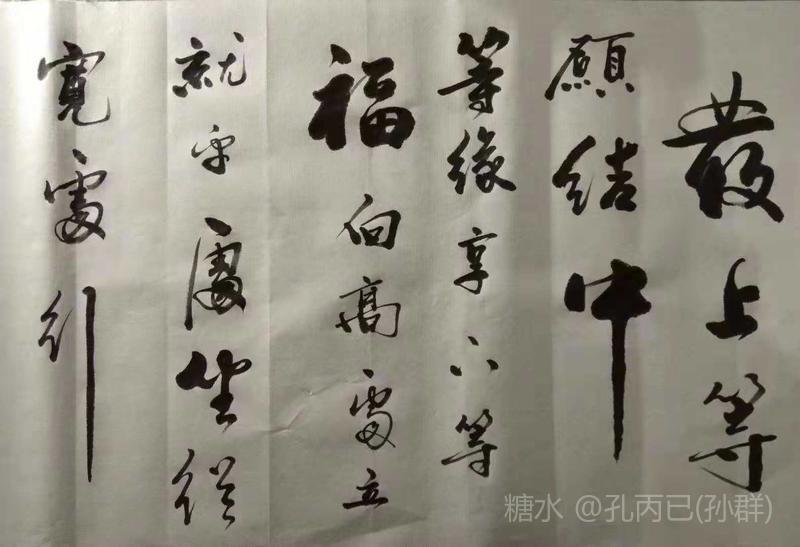 發上等
願結中
等缘享下等
福向高處立
就平處坐從
寬處行
糖水 @孔丙已(孙群)